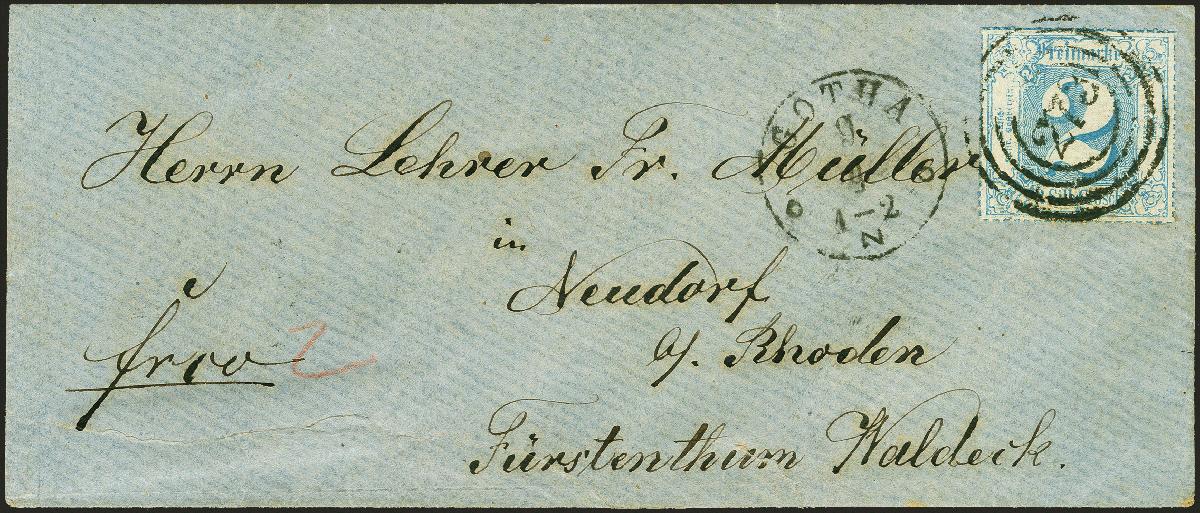 Freimarke
2
GOTHA
9
1-2
N
Herrn Lehrer Fr. Müller
in
Neudorf
a/. Rhoden
Fürstenthum Waldeck.
frco
2